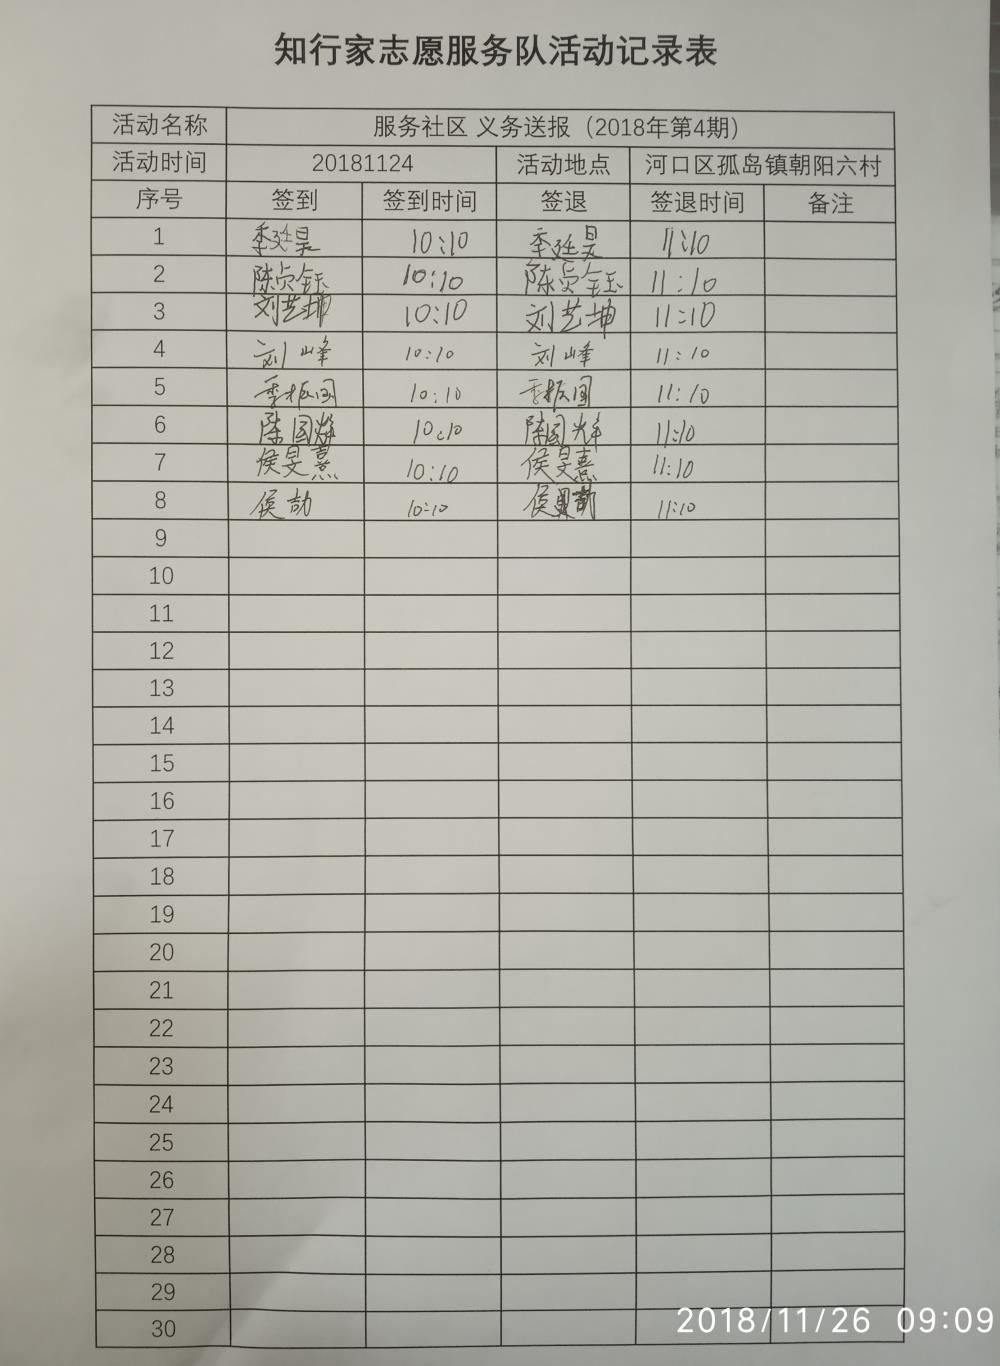 知行家志愿服务队活动记录表
活动名称 服务社区 义务送报（2018年第4期）
活动时间 20181124 活动地点 河口区孤岛镇朝阳六村
序号 签到 签到时间 签退 签退时间 备注
1 季廷昊 10:10 季廷昊 11:10
2 陈贞钰 10:10 陈贞钰 11:10
3 刘艺坤 10:10 刘艺坤 11:10
4 刘峰 10:10 刘峰 11:10
5 季振国 10:10 季振国 11:10
6 陈国辉 10:10 陈国辉 11:10
7 侯旻熹 10:10 侯旻熹 11:10
8 侯劼 10:10 侯 11:10
9
10
11
12
13
14
15
16
17
18
19
20
21
22
23
24
25
26
27
28
29
30
2018/11/26 09:09